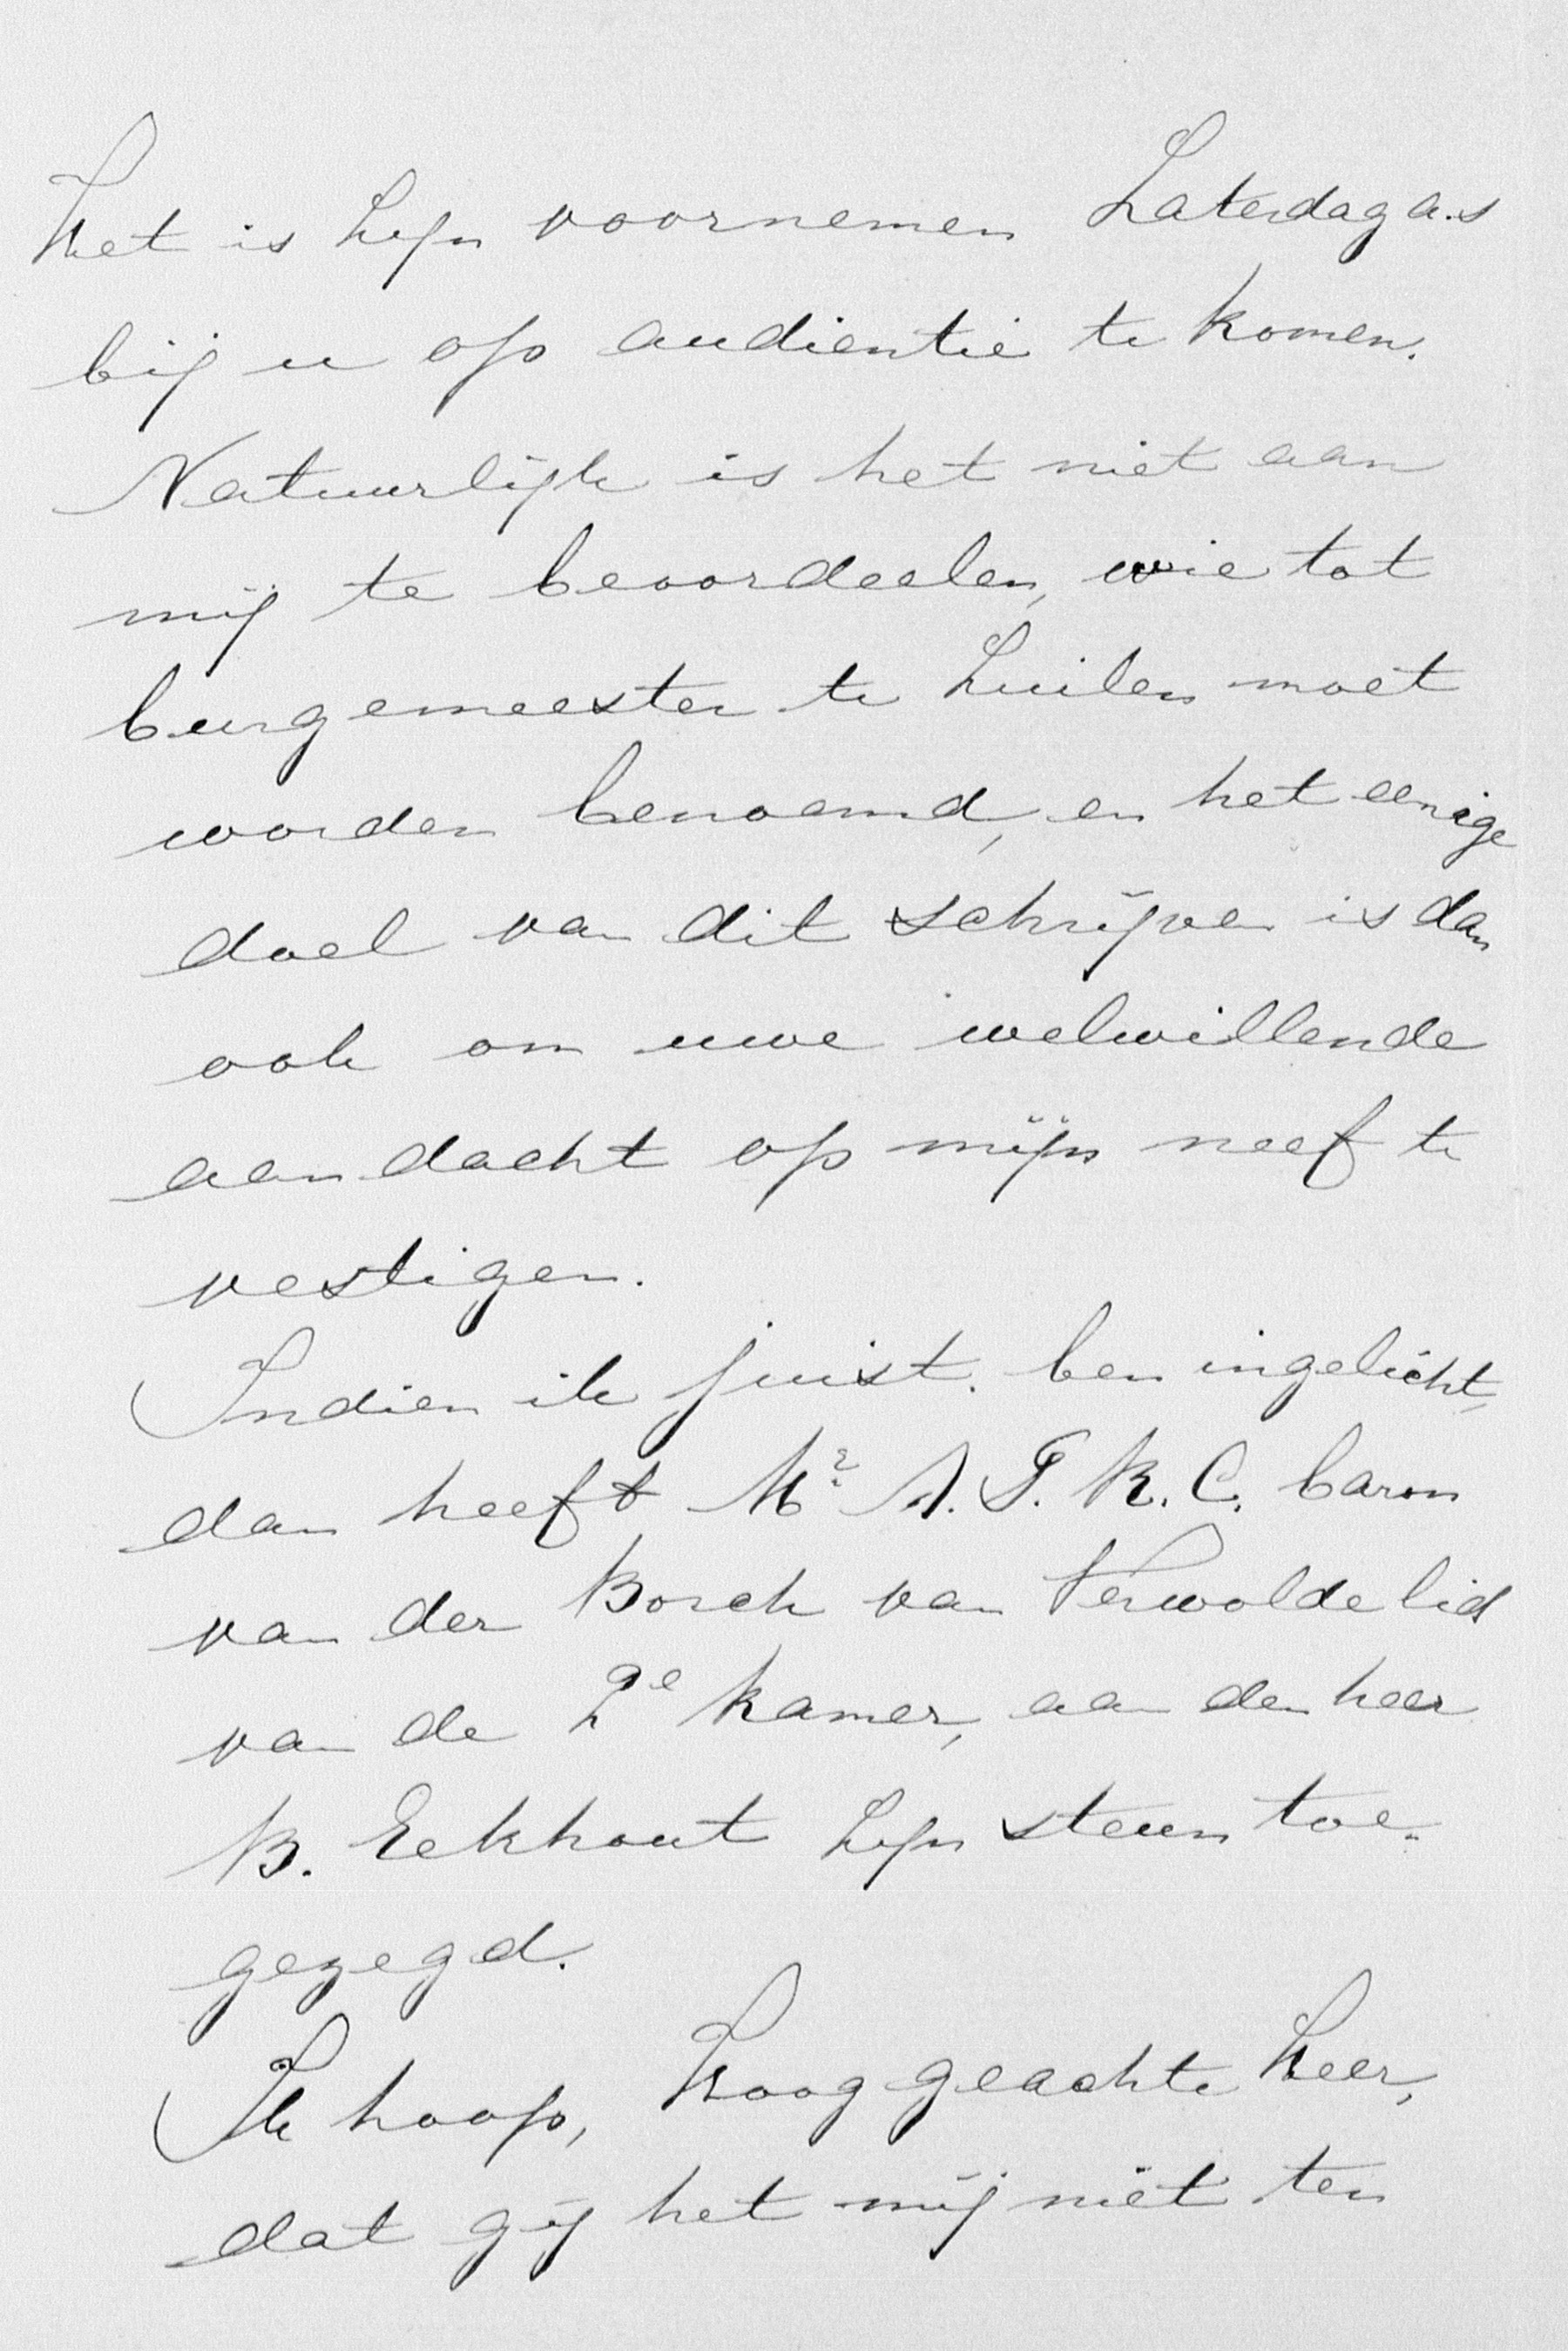 Het is zijn voornemen Zaterdag a.s
bij u op audientie te komen.
Natuurlijk is het niet aan
mij te beoordeelen, wie tot
burgemeester te Zuilen moet
worden benoemd, en het eenige
doel van dit schrijven is dan
ook om uwe welwillende
aandacht op mijn neef te
vestigen.
Indien ik juist ben ingelicht,
dan heeft Mr. A. P. R. C. baron
van der Borch van Verwolde lid
van de 2e Kamer, aan den heer
B. Eekhout zijn steun toe-
gezegd.
Ik hoop, Hooggeachte Heer,
dat gij het mij niet ten